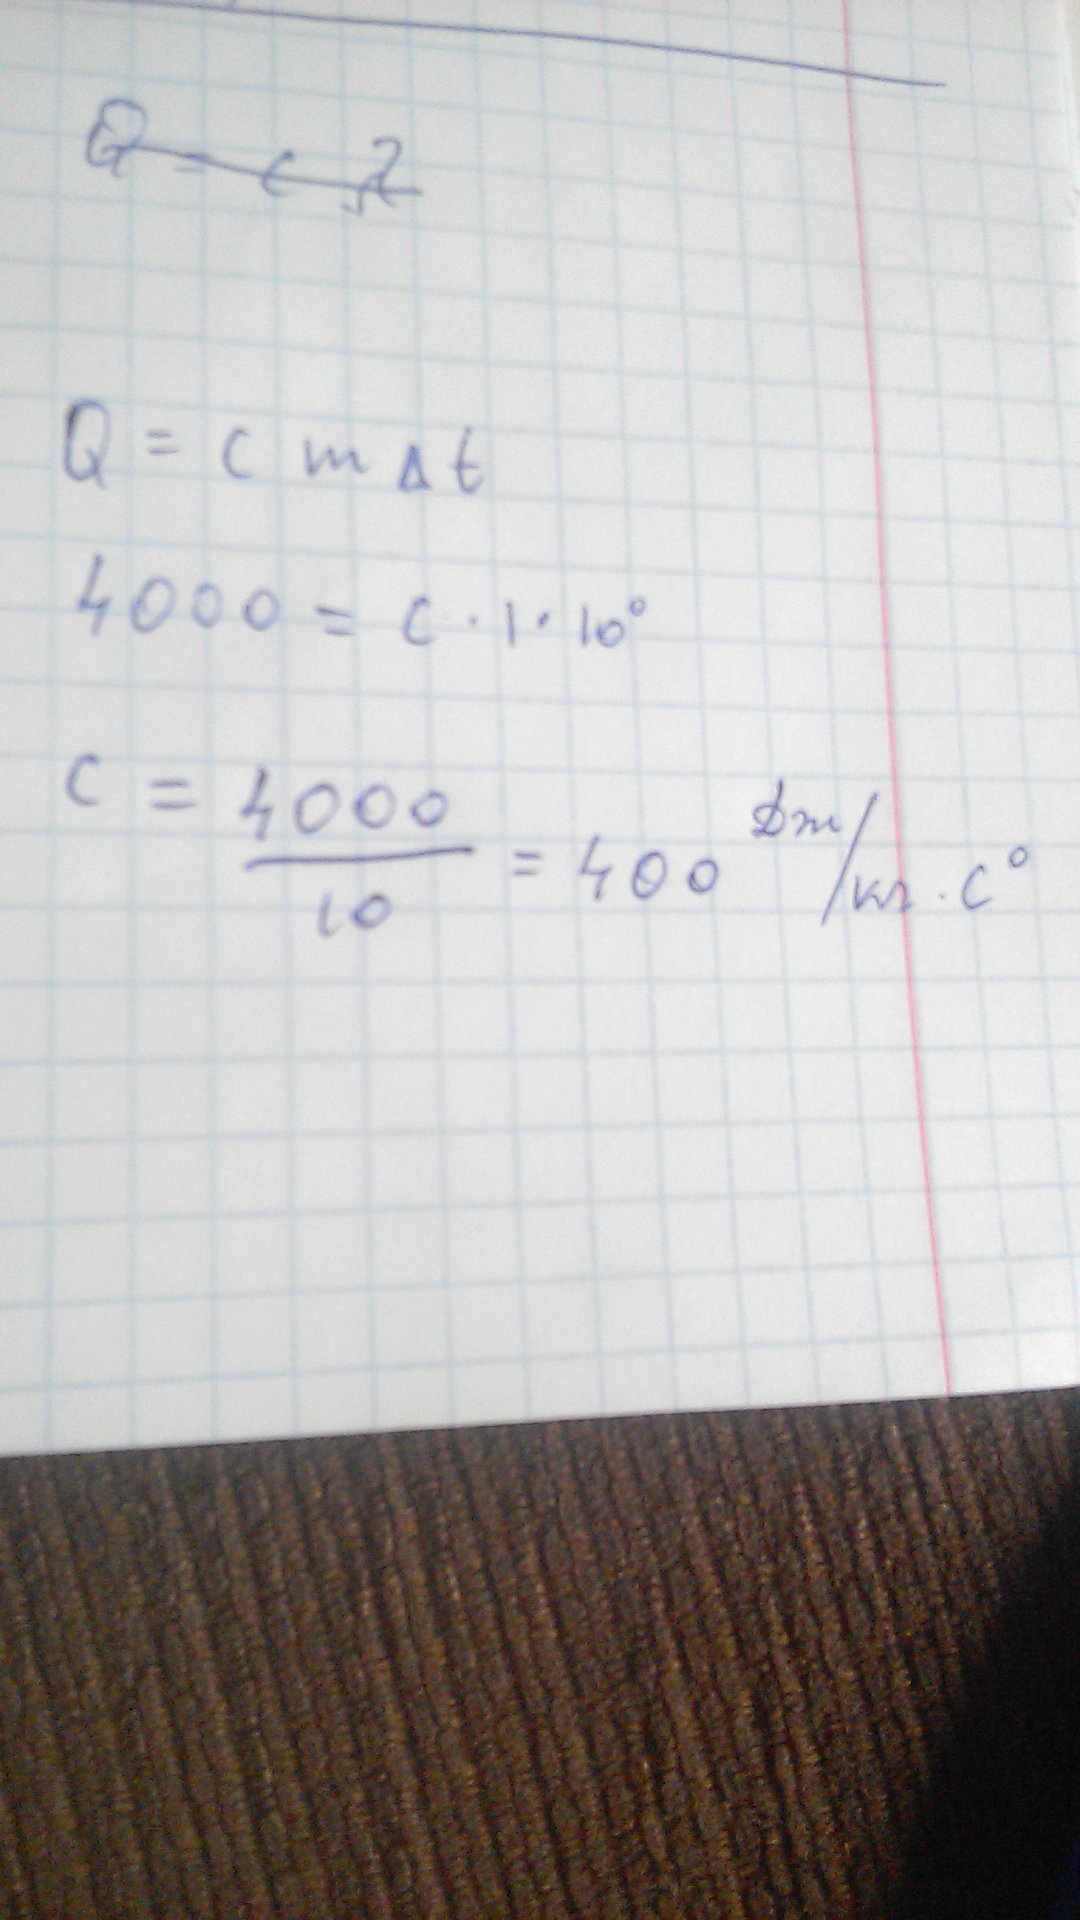 Q = c m Δ t
4000 = c · 1 · 10°
c = 4000/10 = 400 Дж/кг · C°